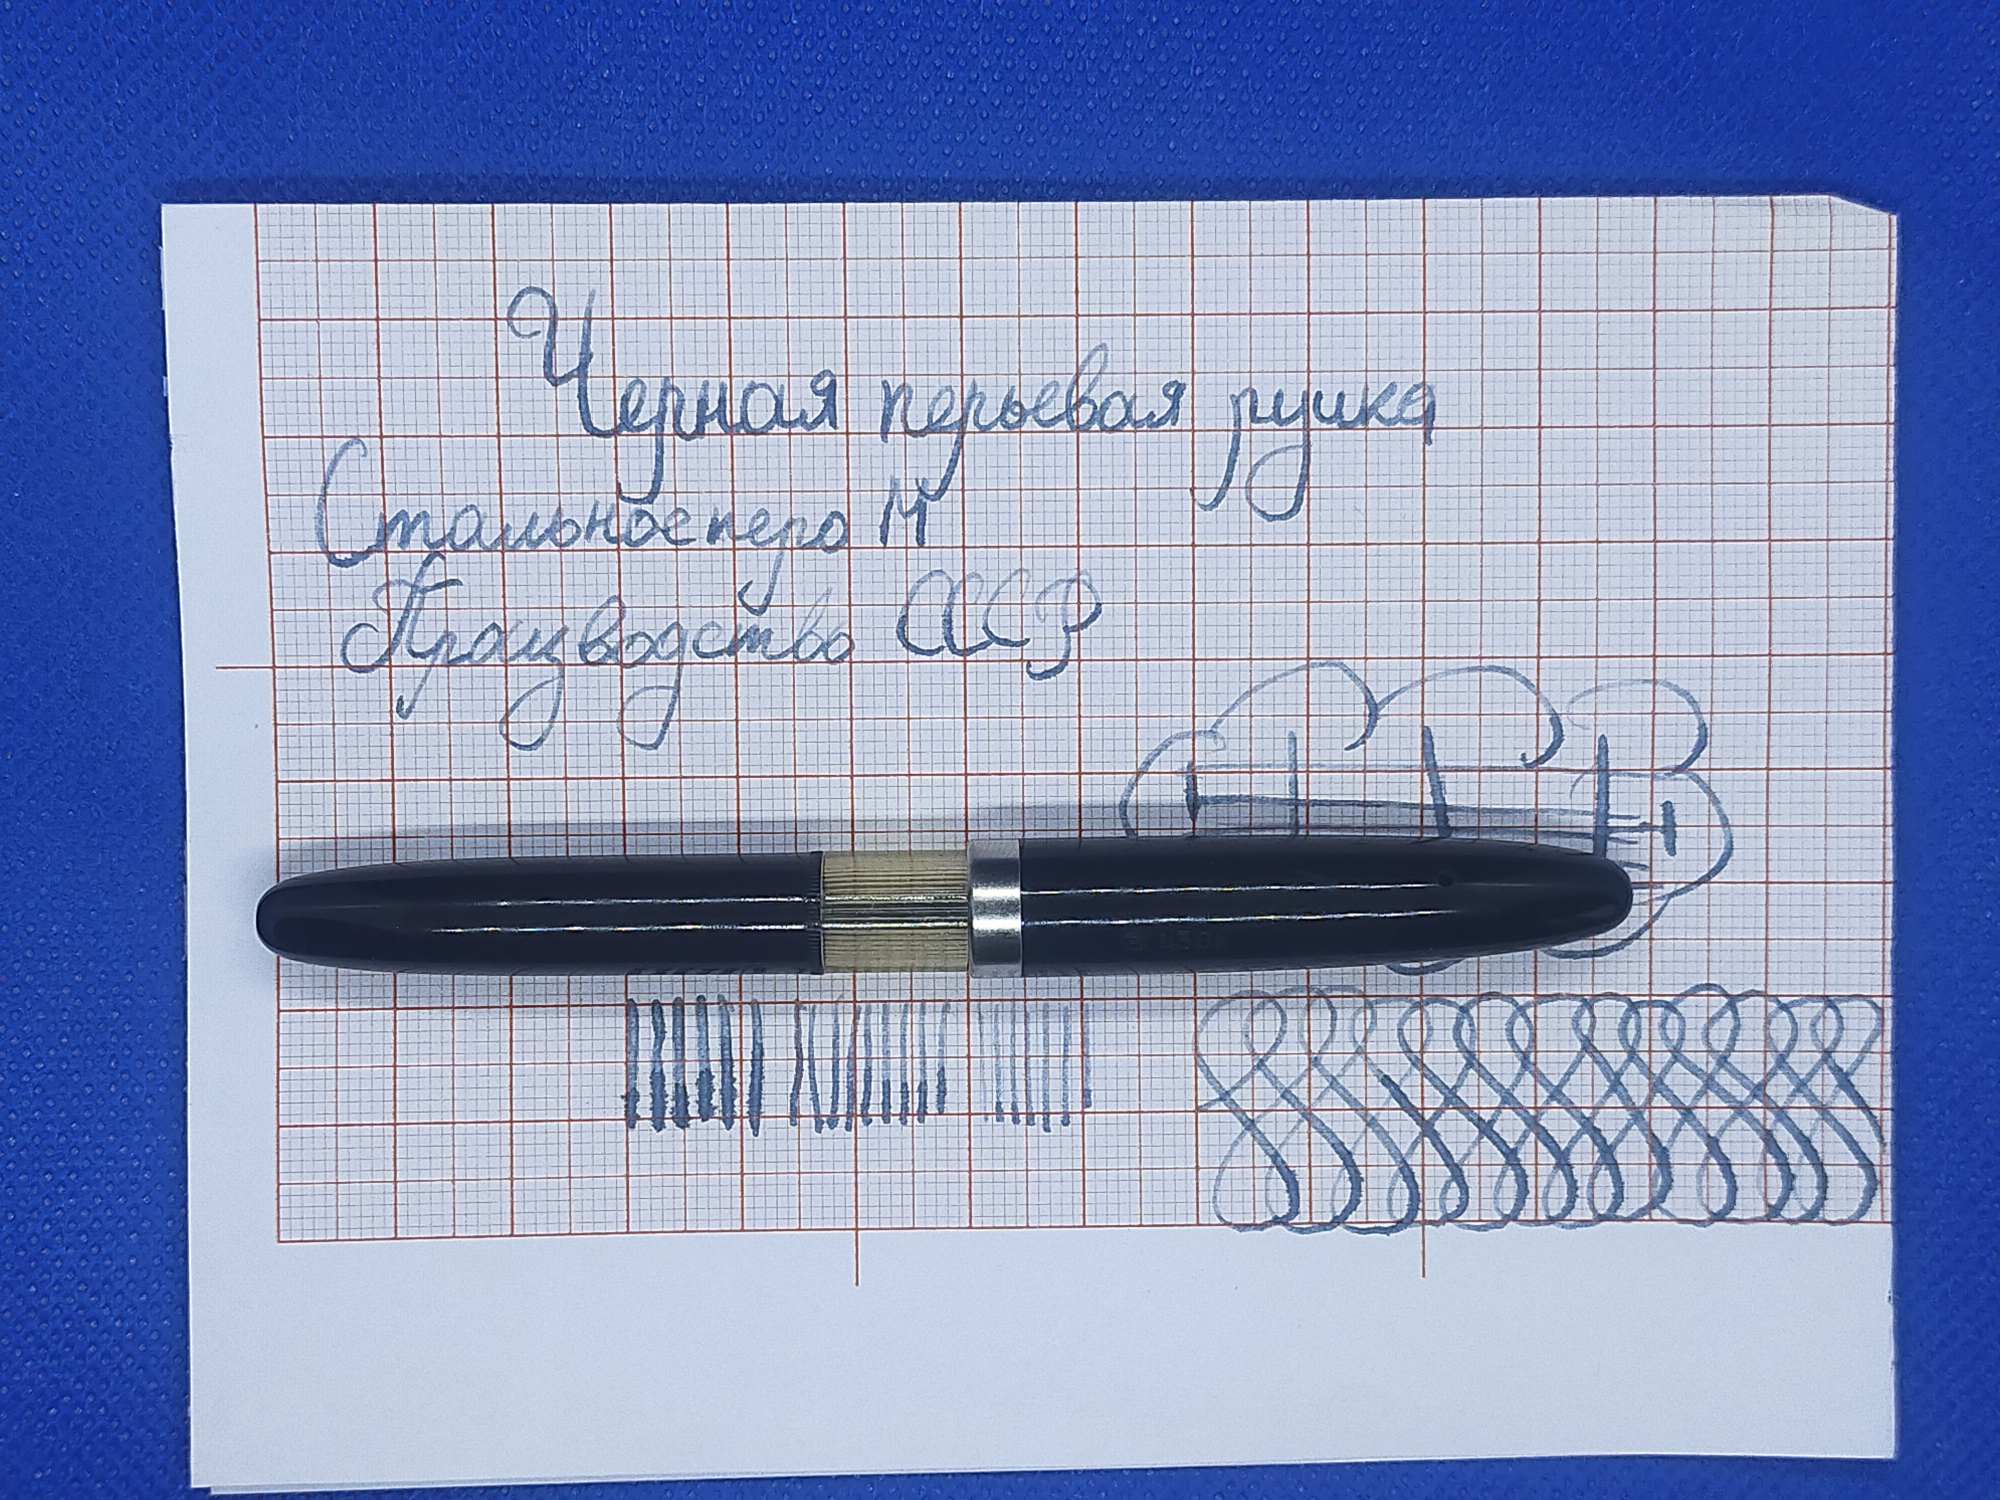 Черная перьевая ручка
Стальное перо М
Производство СССР